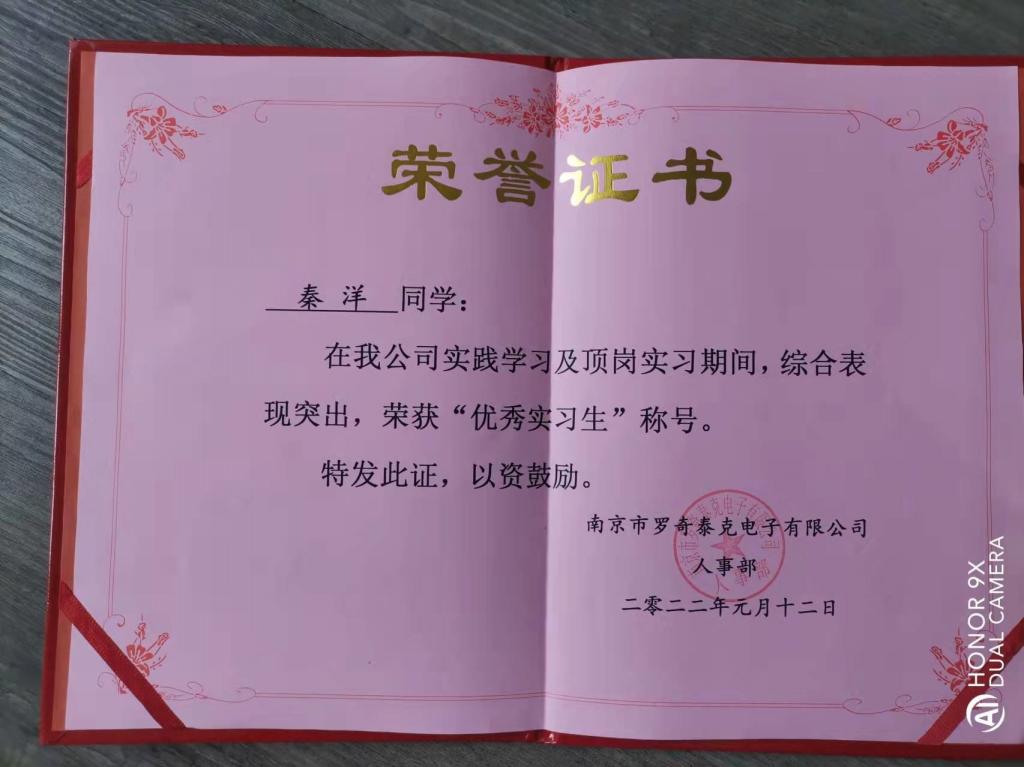 荣誉证书
秦洋 同学：
在我公司实践学习及顶岗实习期间，综合表
现突出，荣获“优秀实习生”称号。
特发此证，以资鼓励。
南京市罗奇泰克电子有限公司
人事部
二零二二年元月十二日
HONOR 9X
DUAL CAMERA